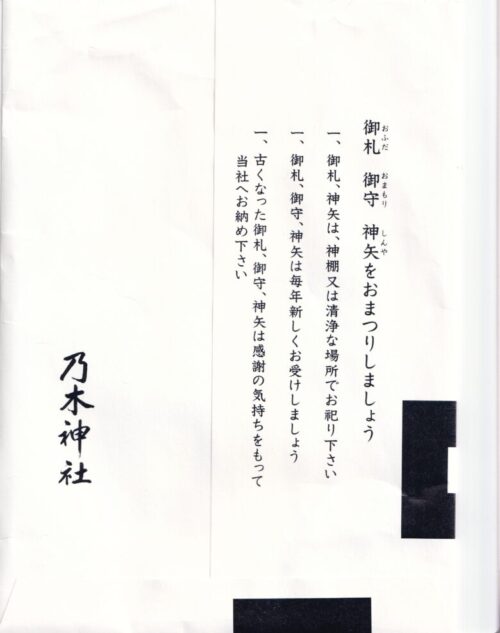 御札　御守　神矢をおまつりしましょう
おふだ　おまもり　しんや
一、御札、神矢は、神棚又は清浄な場所でお祀り下さい
一、御札、御守、神矢は毎年新しくお受けしましょう
一、古くなった御札、御守、神矢は感謝の気持ちをもって
当社へお納め下さい
乃木神社